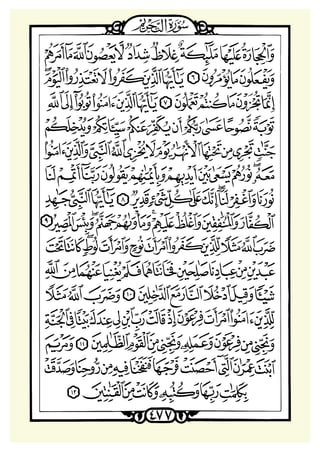 سُورَةُ التَّحْرِيمِ
وَالْحِجَارَةُ عَلَيْهَا مَلَٰٓئِكَةٌ غِلَاظٌ شِدَادٌ لَّا يَعْصُونَ اللَّهَ مَآ أَمَرَهُمْ
وَيَفْعَلُونَ مَا يُؤْمَرُونَ ٦ يَٰٓأَيُّهَا الَّذِينَ كَفَرُوا لَا تَعْتَذِرُوا الْيَوْمَ
إِنَّمَا تُجْزَوْنَ مَا كُنتُمْ تَعْمَلُونَ ٧ يَٰٓأَيُّهَا الَّذِينَ ءَامَنُوا تُوبُوٓا إِلَى اللَّهِ
تَوْبَةً نَّصُوحًا عَسَىٰ رَبُّكُمْ أَن يُكَفِّرَ عَنكُمْ سَيِّـَٔاتِكُمْ وَيُدْخِلَكُمْ
جَنَّٰتٍ تَجْرِي مِن تَحْتِهَا الْأَنْهَٰرُ يَوْمَ لَا يُخْزِي اللَّهُ النَّبِيَّ وَالَّذِينَ ءَامَنُوا
مَعَهُۥ نُورُهُمْ يَسْعَىٰ بَيْنَ أَيْدِيهِمْ وَبِأَيْمَٰنِهِمْ يَقُولُونَ رَبَّنَآ أَتْمِمْ لَنَا
نُورَنَا وَاغْفِرْ لَنَآ إِنَّكَ عَلَىٰ كُلِّ شَيْءٍ قَدِيرٌ ٨ يَٰٓأَيُّهَا النَّبِيُّ جَٰهِدِ
الْكُفَّارَ وَالْمُنَٰفِقِينَ وَاغْلُظْ عَلَيْهِمْ وَمَأْوَىٰهُمْ جَهَنَّمُ وَبِئْسَ الْمَصِيرُ ٩
ضَرَبَ اللَّهُ مَثَلًا لِّلَّذِينَ كَفَرُوا امْرَأَتَ نُوحٍ وَامْرَأَتَ لُوطٍ كَانَتَا تَحْتَ
عَبْدَيْنِ مِنْ عِبَادِنَا صَٰلِحَيْنِ فَخَانَتَاهُمَا فَلَمْ يُغْنِيَا عَنْهُمَا مِنَ اللَّهِ
شَيْـًٔا وَقِيلَ ادْخُلَا النَّارَ مَعَ الدَّٰخِلِينَ ١٠ وَضَرَبَ اللَّهُ مَثَلًا
لِّلَّذِينَ ءَامَنُوا امْرَأَتَ فِرْعَوْنَ إِذْ قَالَتْ رَبِّ ابْنِ لِي عِندَكَ بَيْتًا فِي الْجَنَّةِ
وَنَجِّنِي مِن فِرْعَوْنَ وَعَمَلِهِۦ وَنَجِّنِي مِنَ الْقَوْمِ الظَّٰلِمِينَ ١١ وَمَرْيَمَ
ابْنَتَ عِمْرَٰنَ الَّتِيٓ أَحْصَنَتْ فَرْجَهَا فَنَفَخْنَا فِيهِ مِن رُّوحِنَا وَصَدَّقَتْ
بِكَلِمَٰتِ رَبِّهَا وَكُتُبِهِۦ وَكَانَتْ مِنَ الْقَٰنِتِينَ ١٢
٤٧٧